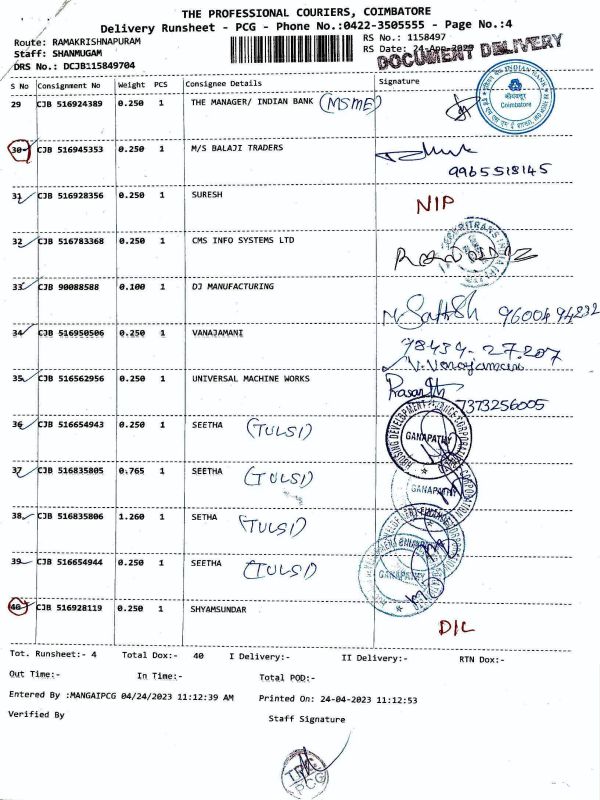 THE PROFESSIONAL COURIERS, COIMBATORE
Delivery Runsheet - PCG - Phone No.:0422-3505555 - Page No.:4
Route: RAMAKRISHNAPURAM RS No.: 1158497
Staff: SHANMUGAM RS Date: 24-Apr-2023
DRS No.: DCJB115849704 DOCUMENT DELIVERY
S No Consignment No Weight PCS Consignee Details Signature
29 CJB 516924389 0.250 1 THE MANAGER/ INDIAN BANK (MSME) INDIAN BANK Coimbatore
30 CJB 516945353 0.250 1 M/S BALAJI TRADERS
9965518145
31 CJB 516928356 0.250 1 SURESH NIP
32 CJB 516783368 0.250 1 CMS INFO SYSTEMS LTD
33 CJB 90088588 0.100 1 DJ MANUFACTURING
M. Sathish 9600494232
34 CJB 516950506 0.250 1 VANAJAMANI 78434-27207
V. Vanajamani
35 CJB 516562956 0.250 1 UNIVERSAL MACHINE WORKS Prasanth
7373256005
36 CJB 516654943 0.250 1 SEETHA (TULSI) GANAPATHY
37 CJB 516835805 0.765 1 SEETHA (TULSI) GANAPATHY
38 CJB 516835806 1.260 1 SETHA (TULSI)
39 CJB 516654944 0.250 1 SEETHA (TULSI) GANAPATHY
40 CJB 516928119 0.250 1 SHYAMSUNDAR D/L
Tot. Runsheet:- 4 Total Dox:- 40 I Delivery:- II Delivery:- RTN Dox:-
Out Time:- In Time:- Total POD:-
Entered By :MANGAIPCG 04/24/2023 11:12:39 AM Printed On: 24-04-2023 11:12:53
Verified By Staff Signature
TPC
PCG